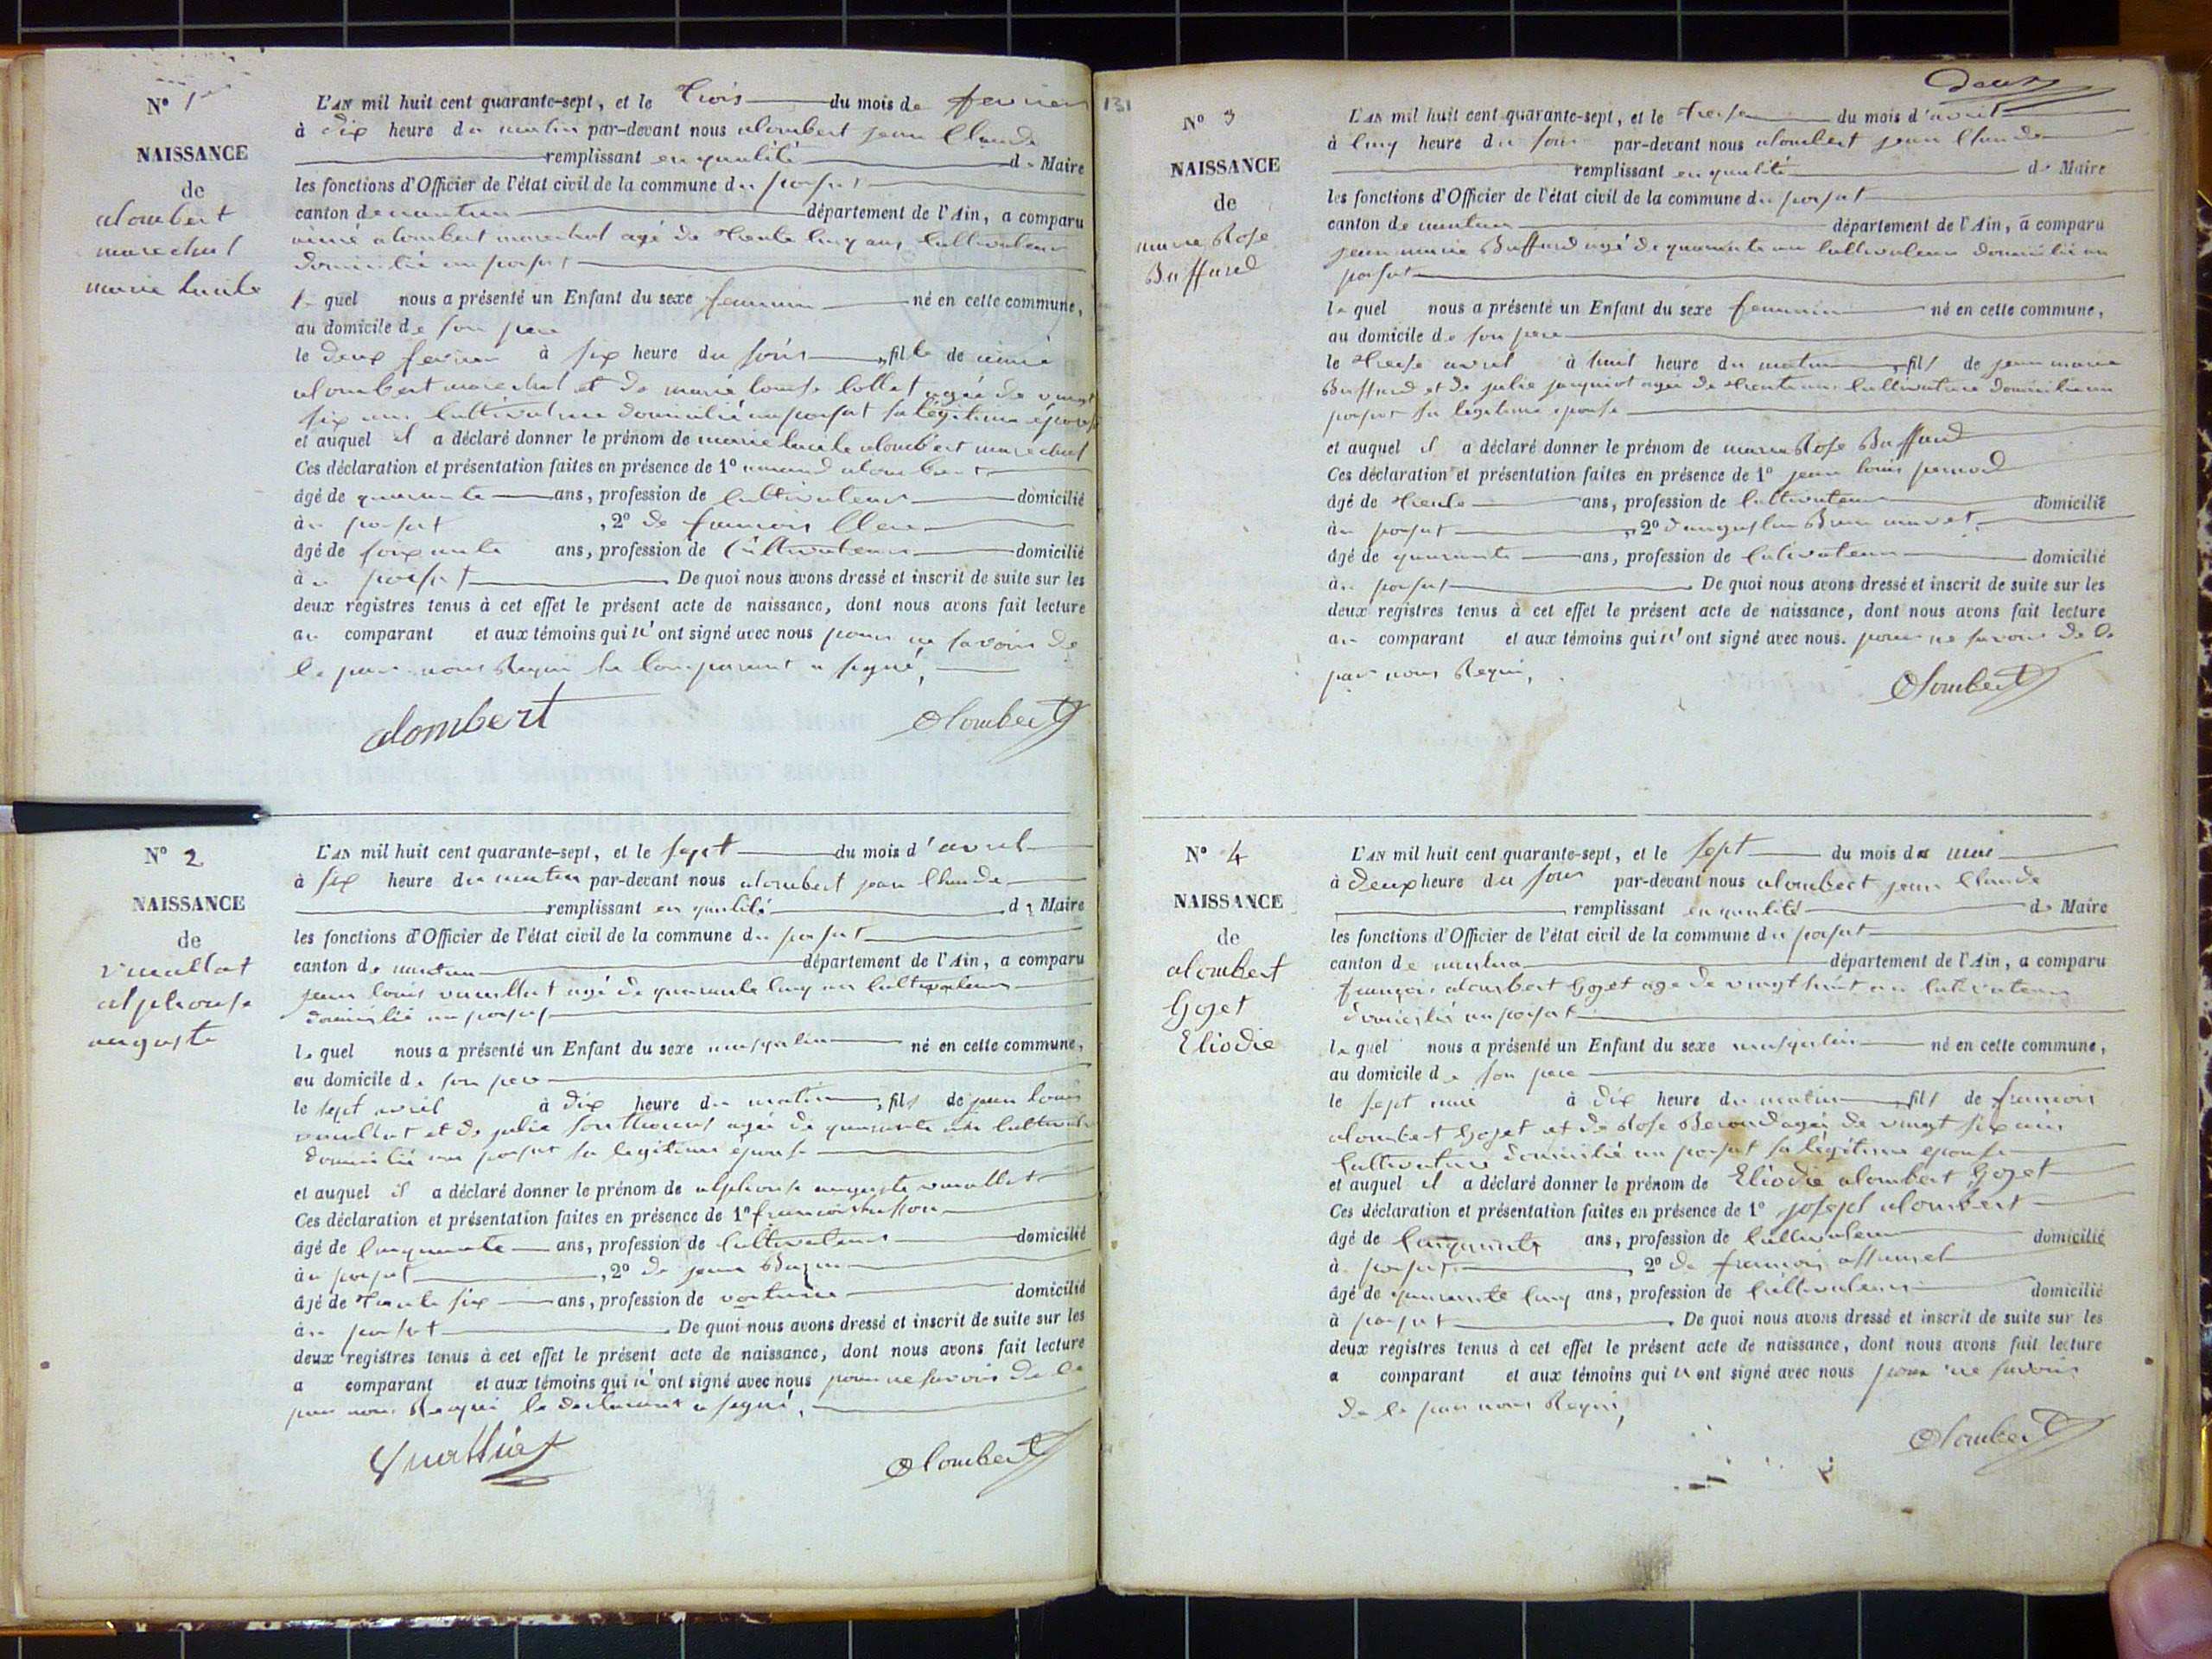 N° 1er
NAISSANCE
de
alombert
marechal
marie lucile
L'AN mil huit cent quarante-sept, et le trois du mois de fevrier
à dix heure du matin par-devant nous alombert jean Claude
remplissant en qualité de Maire
les fonctions d'Officier de l'état civil de la commune du poisat
canton de nantua département de l'Ain, a comparu
aimé alombert marechal agé de trente cinq ans cultivateur
domicilié au poisat
le quel nous a présenté un Enfant du sexe feminin né en cette commune,
au domicile de son pere
le deux fevrier à six heure du soir, fille de aimé
alombert marechal et de marie louise collet agée de vingt
six ans cultivatrice domicilié au poisat sa légitime épouse
et auquel il a déclaré donner le prénom de marie lucile alombert marechal
Ces déclaration et présentation faites en présence de 1° armand alombert
âgé de quarante ans, profession de cultivateur domicilié
au poisat, 2° de francois
âgé de soixante ans, profession de cultivateur domicilié
au poisat. De quoi nous avons dressé et inscrit de suite sur les
deux registres tenus à cet effet le présent acte de naissance, dont nous avons fait lecture
au comparant et aux témoins qui n'ont signé avec nous pour ne savoir de
le par nous Requi le Comparant a signé,
alombert Alombert
N° 2
NAISSANCE
de
vuaillat
alphonse
auguste
L'AN mil huit cent quarante-sept, et le sept du mois d'avril
à six heure du matin par-devant nous alombert jean Claude
remplissant en qualité de Maire
les fonctions d'Officier de l'état civil de la commune du poisat
canton de nantua département de l'Ain, a comparu
jean louis vuaillat agé de quarante cinq an cultivateur
domicilié au poisat
le quel nous a présenté un Enfant du sexe masqulin né en cette commune,
au domicile de son pere
le sept avril à dix heure du matin, fils de jean louis
vuaillat et de julie agée de quarante ans
domicilié au poisat sa legitime épouse
et auquel il a déclaré donner le prénom de alphonse auguste vuaillat
Ces déclaration et présentation faites en présence de 1° francois
âgé de cinquante ans, profession de cultivateur domicilié
au poisat, 2° de jean
âgé de trente six ans, profession de domicilié
au poisat. De quoi nous avons dressé et inscrit de suite sur les
deux registres tenus à cet effet le présent acte de naissance, dont nous avons fait lecture
a comparant et aux témoins qui n'ont signé avec nous pour ne savoir de le
par nous Requi le declarant a signé,
Vuaillat Alombert
deux
131
N° 3
NAISSANCE
de
marie Rose
Buffard
L'AN mil huit cent quarante-sept, et le treise du mois d'avril
à cinq heure du soir par-devant nous alombert jean Claude
remplissant en qualité de Maire
les fonctions d'Officier de l'état civil de la commune du poisat
canton de nantua département de l'Ain, a comparu
jean marie Buffard agé de quarante an cultivateur domicilié au
poisat
le quel nous a présenté un Enfant du sexe feminin né en cette commune,
au domicile de son pere
le treise avril à huit heure du matin, fils de jean marie
Buffard et de julie jacquiot agée de trente ans cultivatrice domicilié au
poisat sa legitime epouse
et auquel il a déclaré donner le prénom de marie Rose Buffard
Ces déclaration et présentation faites en présence de 1° jean louis pernod
âgé de trente ans, profession de cultivateur domicilié
au poisat, 2° d'augustin
âgé de quarante ans, profession de cultivateur domicilié
au poisat. De quoi nous avons dressé et inscrit de suite sur les
deux registres tenus à cet effet le présent acte de naissance, dont nous avons fait lecture
au comparant et aux témoins qui n'ont signé avec nous. pour ne savoir de le
par nous Requi,
Alombert
N° 4
NAISSANCE
de
alombert
Goget
Eliodie
L'AN mil huit cent quarante-sept, et le sept du mois de mai
à deux heure du soir par-devant nous alombert jean Claude
remplissant en qualité de Maire
les fonctions d'Officier de l'état civil de la commune du poisat
canton de nantua département de l'Ain, a comparu
françois alombert Goget age de vingt huit an cultivateur
domicilié au poisat
le quel nous a présenté un Enfant du sexe masqulin né en cette commune,
au domicile de son pere
le sept mai à dix heure du matin, fils de francois
alombert Goget et de Rose Beroud agée de vingt six ans
cultivatrice domicilié au poisat sa légitime epouse
et auquel il a déclaré donner le prénom de Eliodie alombert Goget
Ces déclaration et présentation faites en présence de 1° joseph alombert
âgé de cinquante ans, profession de cultivateur domicilié
à poisat, 2° de francois
âgé de quarante cinq ans, profession de cultivateur domicilié
à poisat. De quoi nous avons dressé et inscrit de suite sur les
deux registres tenus à cet effet le présent acte de naissance, dont nous avons fait lecture
a comparant et aux témoins qui n'ont signé avec nous pour ne savoir
de le par nous Requi,
Alombert